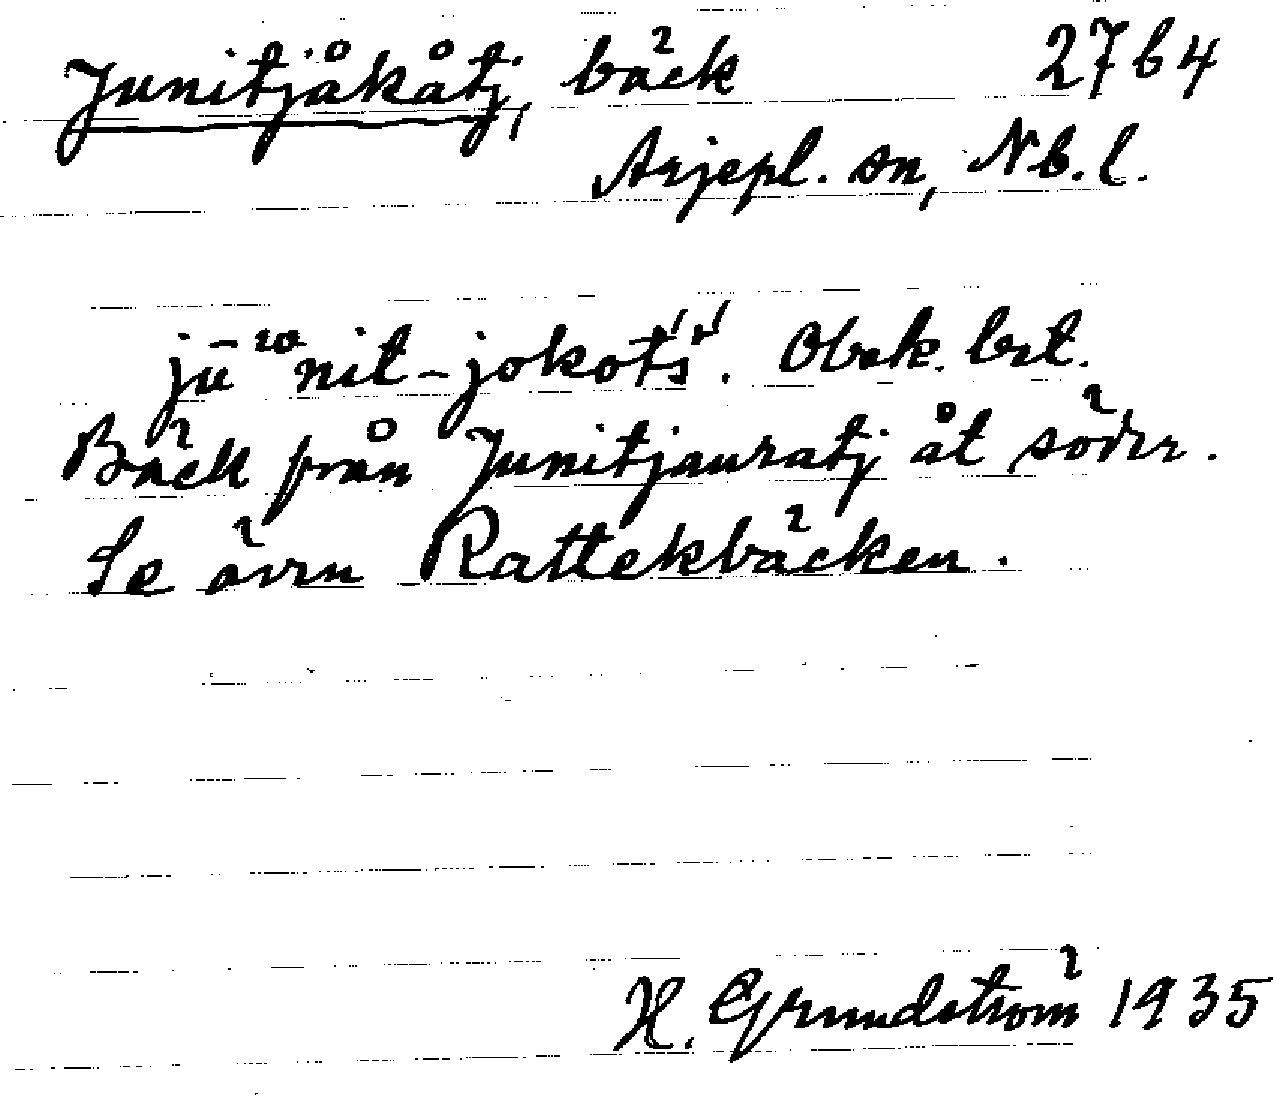 Junitjåkåtj, bäck 2764
Arjepl. sn, Nb. l.
Obek. bet.
Bäck från Junitjauratj åt söder.
Se även Rattekbäcken.
H. Grundström 1935